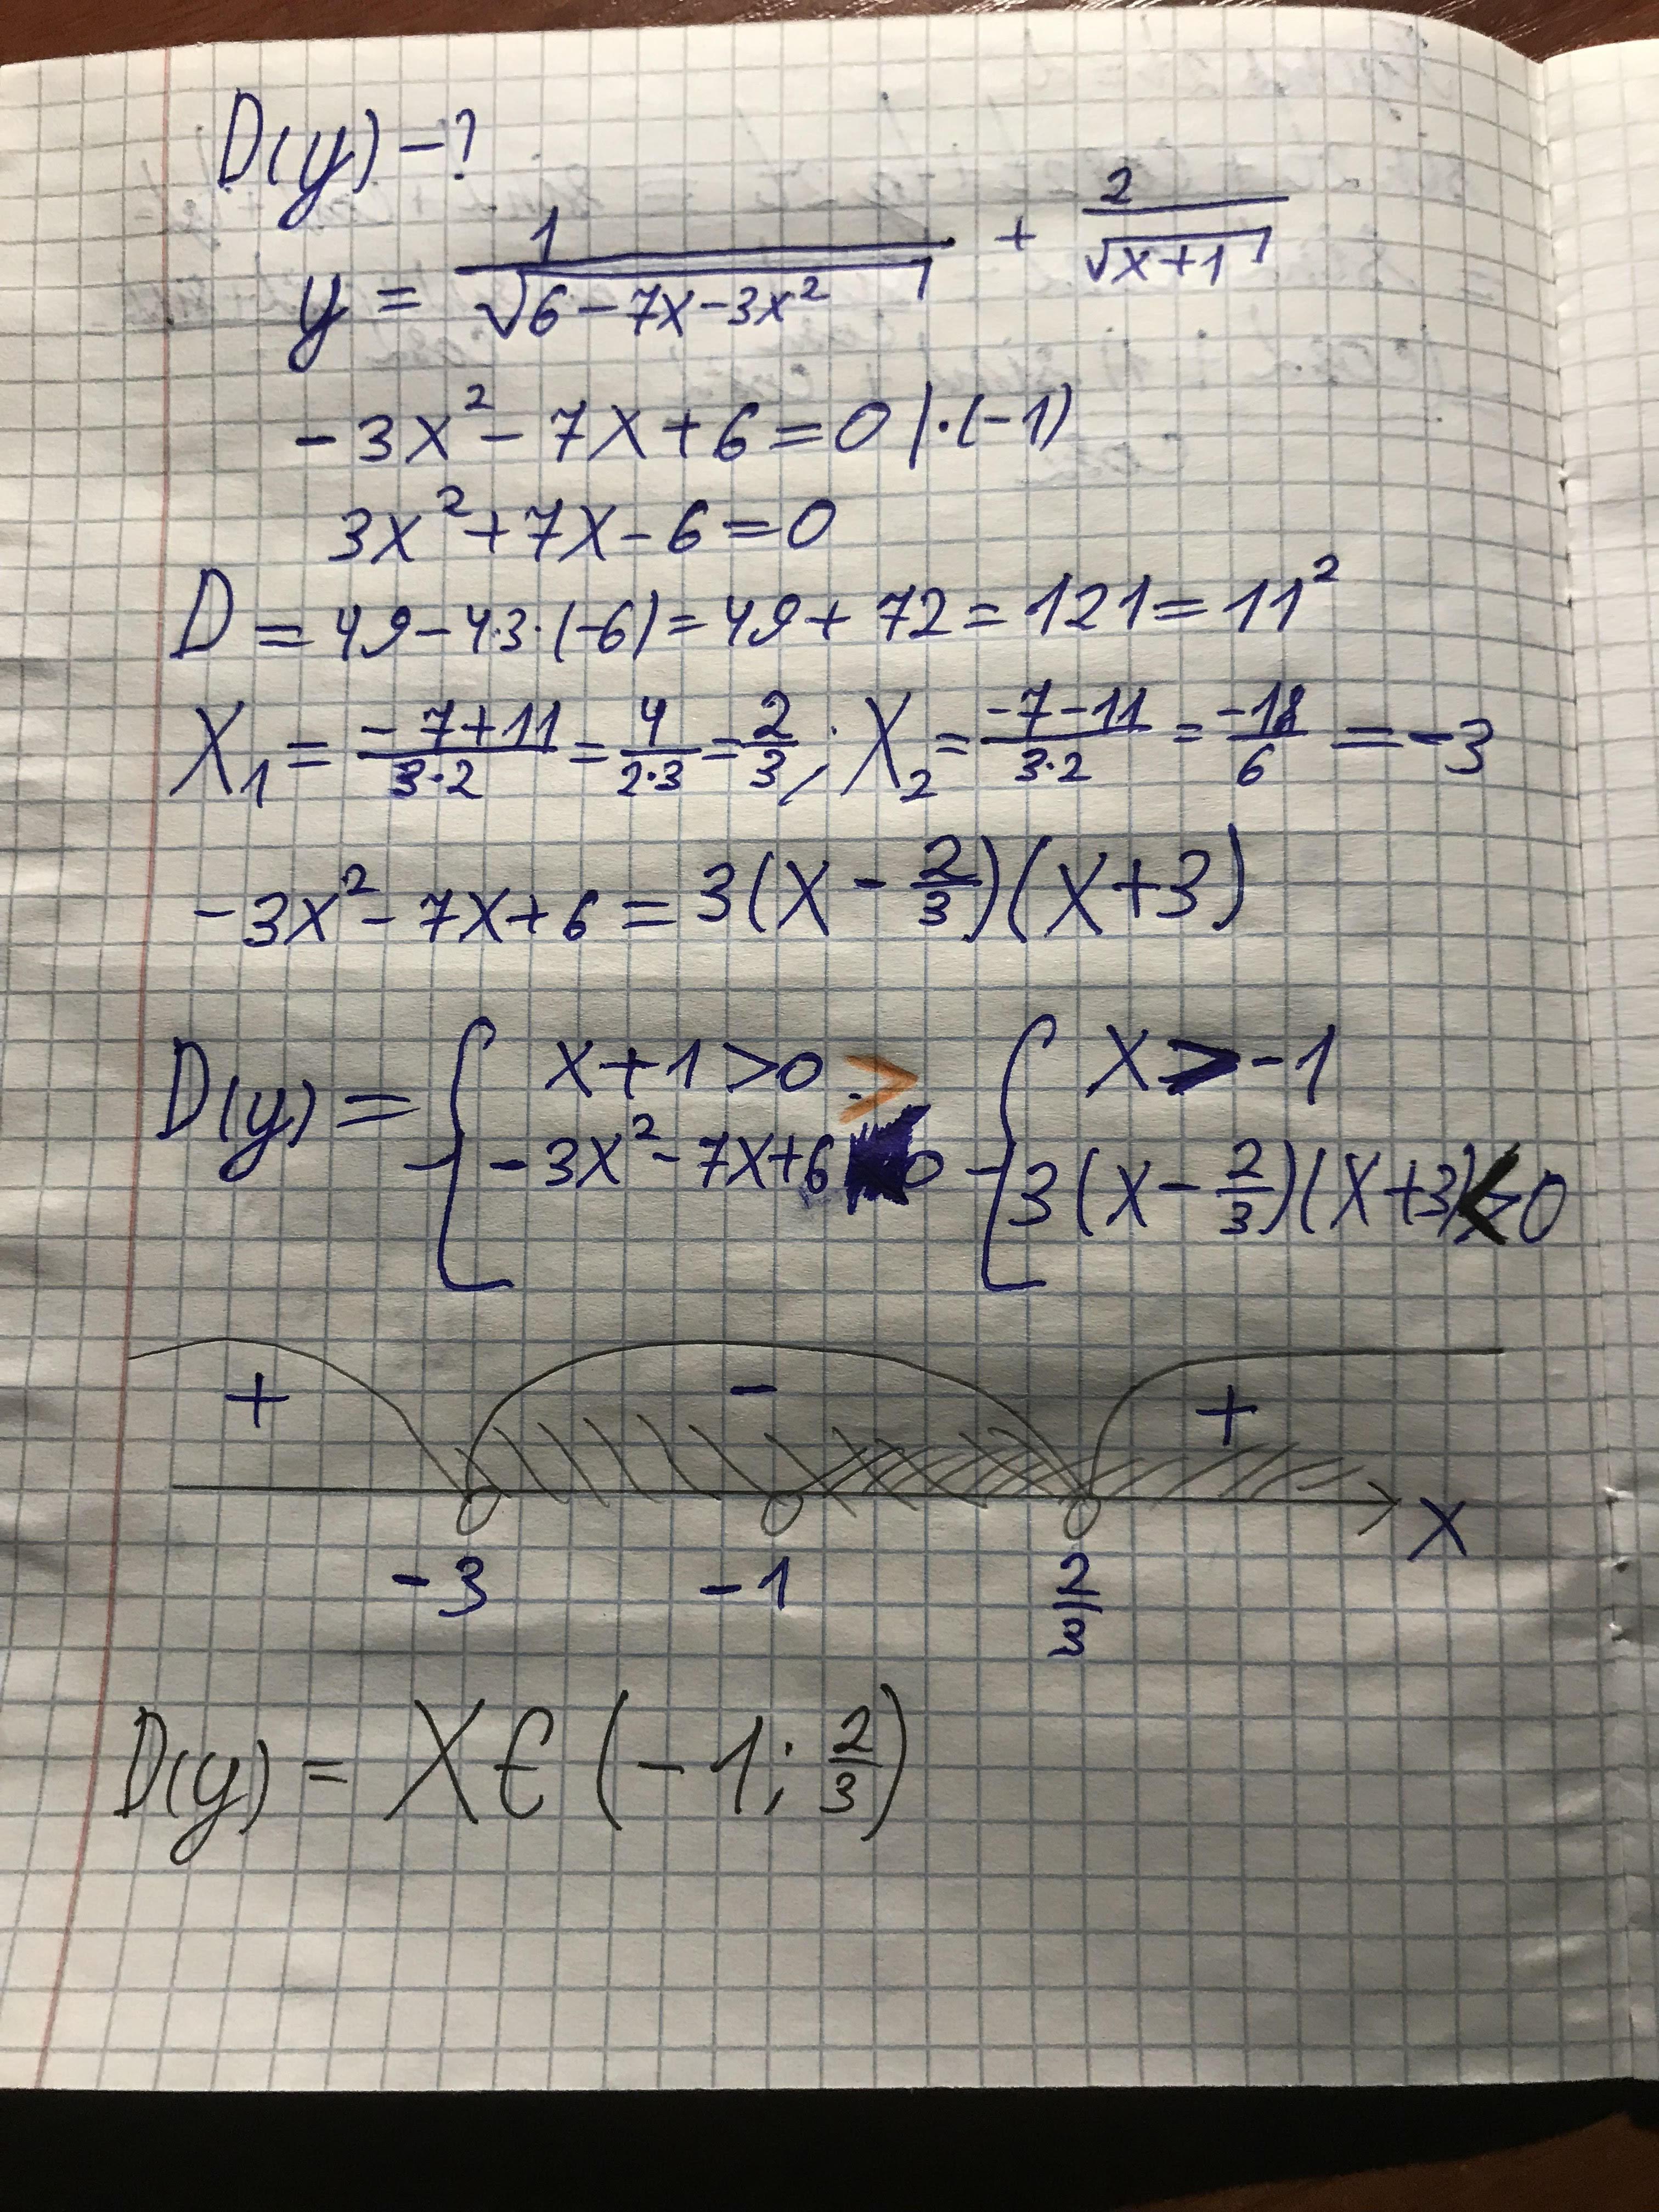 D(y) - ?
y = 1/√(6-7x-3x²) + 2/√(x+1)
-3x² - 7x + 6 = 0 | · (-1)
3x² + 7x - 6 = 0
D = 49 - 4·3·(-6) = 49 + 72 = 121 = 11²
X₁ = (-7+11)/(3·2) = 4/(2·3) = 2/3 ; X₂ = (-7-11)/(3·2) = -18/6 = -3
-3x² - 7x + 6 = 3(x - 2/3)(x+3)
D(y) = { x+1 > 0 { x > -1
> 
{ -3x² - 7x + 6 0 { 3(x - 2/3)(x+3) < 0
+ - +
-3 -1 2/3 x
D(y) = X ∈ (-1; 2/3)